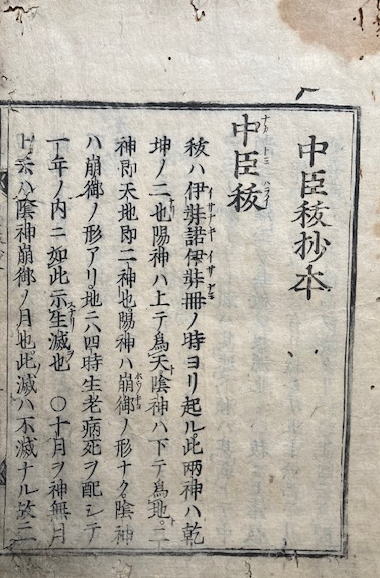 中臣秡抄本
中臣秡
秡ハ伊弉諾伊弉冊ノ時ヨリ起ル此兩神ハ乾
坤ノ二也陽神ハ上テ為天陰神ハ下テ為地二
神即天地即二神也陽神ハ崩御ノ形ナク陰神
ハ崩御ノ形アリ地ニハ四時生老病死ヲ配シテ
一年ノ内ニ如此示生滅也 〇十月ヲ神無月
ト云ハ陰神崩御ノ月也此滅ハ不滅ナル故ニ